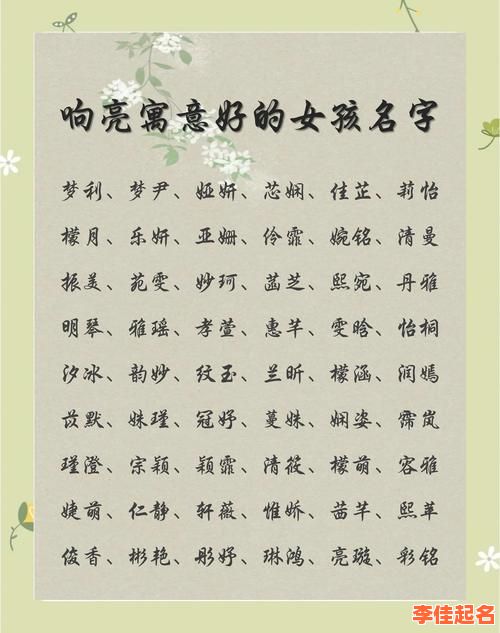 响亮寓意好的女孩名字
梦利、梦尹、娅妍、芯娴、佳芷、莉怡
檬月、乐妍、亚姗、伶霏、婉铭、清曼
振美、苑雯、妙珂、菡芝、熙宛、丹雅
明琴、雅瑶、孝萱、惠芊、雯晗、怡桐
汐冰、韵妙、纹玉、兰昕、檬涵、润嫣
苡默、姝瑾、冠妤、蔓姝、娴姿、霈岚
瑾澄、宗颖、颖霏、清筱、檬萌、容雅
婕萌、仁静、轩薇、惟娇、茜芊、熙苹
俊香、彬艳、彤妤、琳鸿、亮璇、彩铭
李佳起名